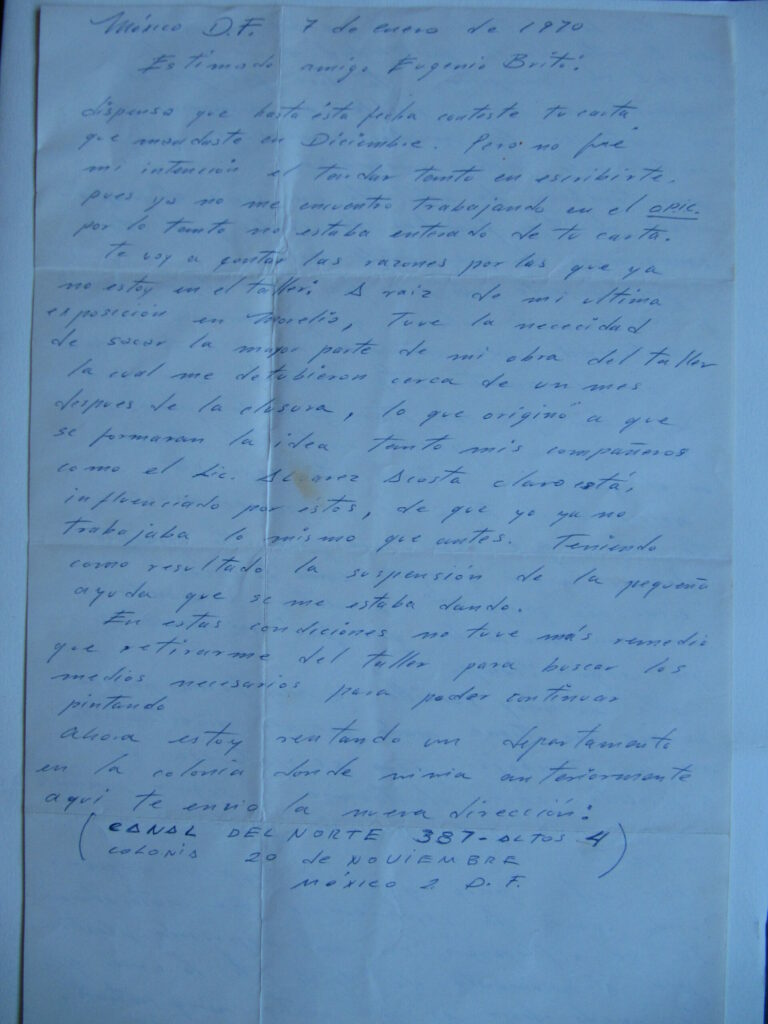 México D.F. 7 de enero de 1970
Estimado amigo Eugenio Brito:
dispensa que hasta ésta fecha conteste tu carta
que mandaste en Diciembre. Pero no fué
mi intención el tardar tanto en escribirte,
pues ya no me encuentro trabajando en el OPIC.
por lo tanto no estaba enterado de tu carta.
te voy a contar las razones por las que ya
no estoy en el taller: A raiz de mi ultima
exposición en Morelia, Tuve la nececidad
de sacar la mayor parte de mi obra del taller
la cual me detubieron cerca de un mes
despues de la clusura, lo que originó a que
se formaran la idea tanto mis compañeros
como el Lic. Alvarez Acosta claro está,
influenciado por éstos, de que yo ya no
trabajaba lo mismo que antes. Teniendo
como resultado la suspensión de la pequeña
ayuda que se me estaba dando.
En estas condiciones no tuve más remedio
que retirarme del taller para buscar los
medios necesarios para poder continuar
pintando
Ahora estoy rentando un departamento
en la colonia donde vivia anteriormente
aqui te envio la nueva dirección:
(CANAL DEL NORTE 387-ALTOS 4
COLONIA 20 de NOVIEMBRE
MÉXICO 2 D.F.)